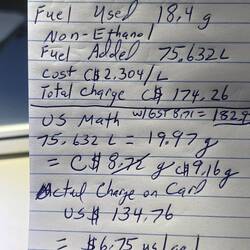 Fuel Used 18.4 g
Non-Ethanol
Fuel Added 75.632 L
Cost C$ 2.304/L
Total Charge C$ 174.26
US Math w/65T 8.71 = 182.9
75.632 L = 19.97 g
= C$ 8.72 g C$9.16 g
Actual Charge on Card
US$ 134.76
= $6.75 us/gal